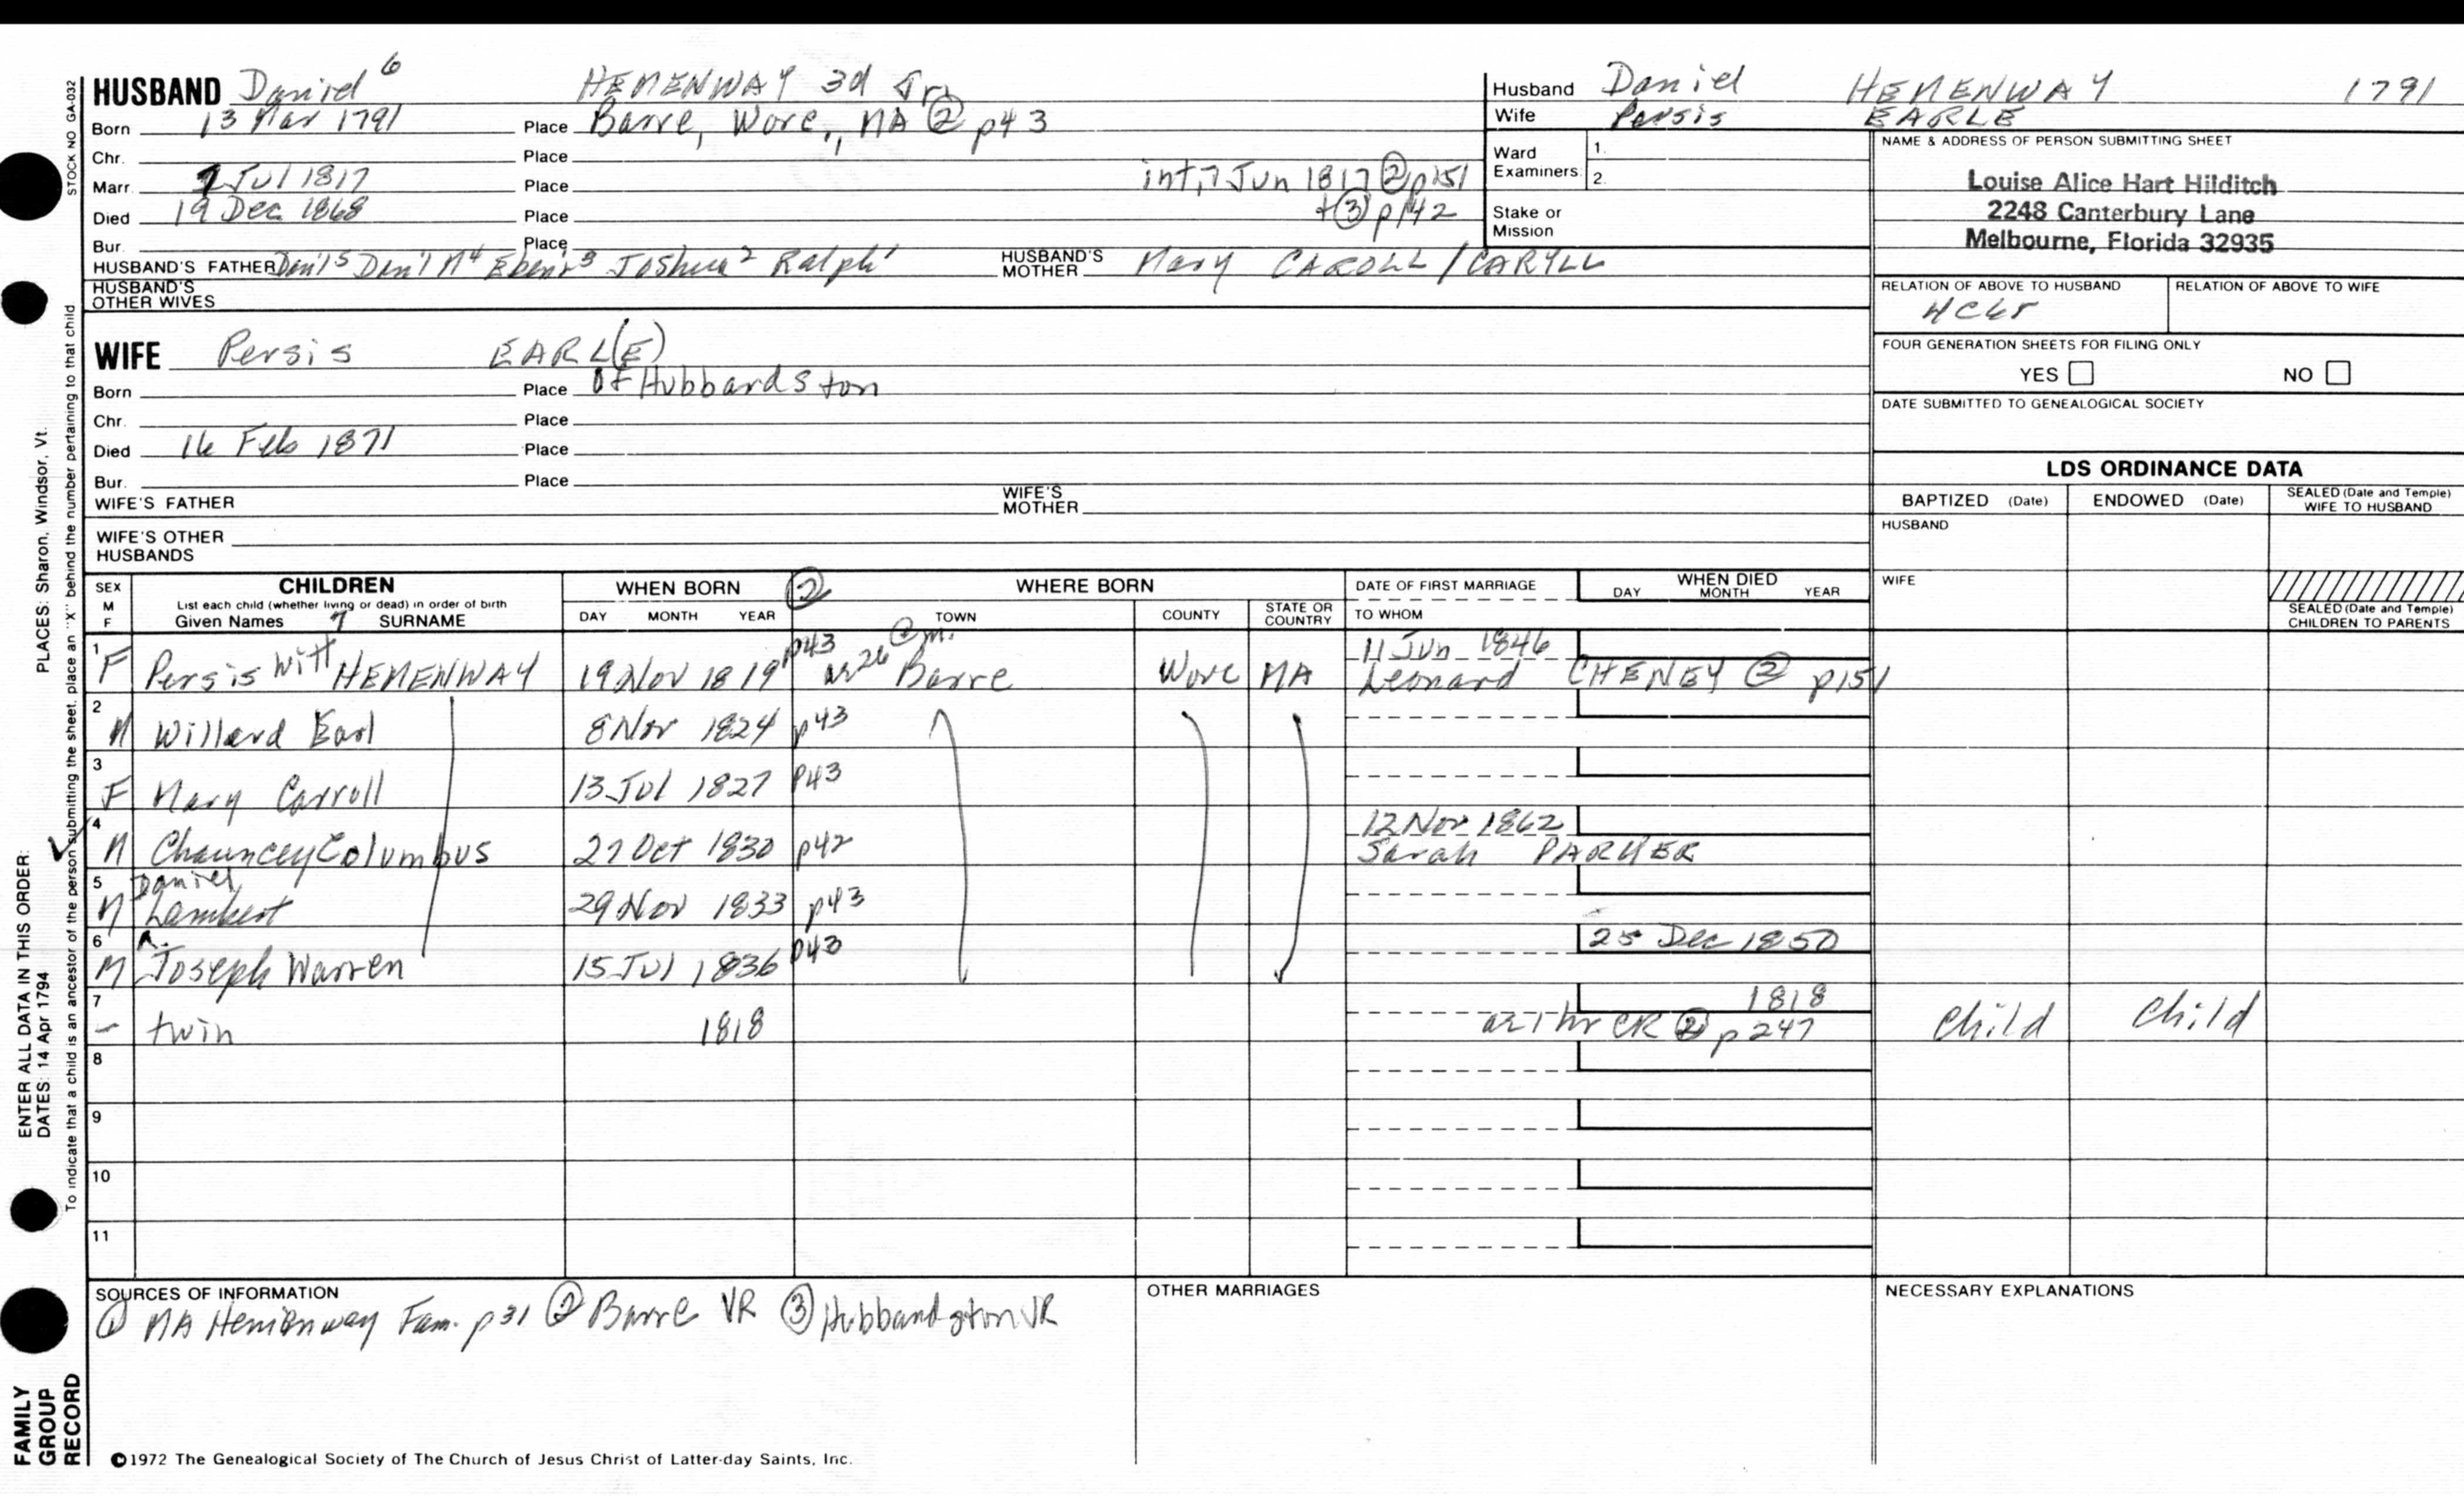 HUSBAND Daniel 6 HEMENWAY 3d Jr.
Born 13 Mar 1791 Place Barre, Worc., MA ② p43
Chr. Place
Marr. 7 Jul 1817 Place int, 7 Jun 1817 ② p151
Died 19 Dec 1868 Place + ③ p142
Bur. Place
HUSBAND'S FATHER Dan'l 5 Dan'l M 4 Eben'r 3 Joshua 2 Ralph 1 HUSBAND'S MOTHER Mary CAROLL / CARYLL
HUSBAND'S OTHER WIVES
WIFE Persis EARL(E)
Born Place of Hubbardston
Chr. Place
Died 16 Feb 1871 Place
Bur. Place
WIFE'S FATHER WIFE'S MOTHER
WIFE'S OTHER HUSBANDS
Husband Daniel HEMENWAY 1791
Wife Persis EARLE
Ward Examiners 1.
2.
Stake or Mission
NAME & ADDRESS OF PERSON SUBMITTING SHEET
Louise Alice Hart Hilditch
2248 Canterbury Lane
Melbourne, Florida 32935
RELATION OF ABOVE TO HUSBAND RELATION OF ABOVE TO WIFE
FOUR GENERATION SHEETS FOR FILING ONLY
YES NO
DATE SUBMITTED TO GENEALOGICAL SOCIETY
LDS ORDINANCE DATA
BAPTIZED (Date) ENDOWED (Date) SEALED (Date and Temple) WIFE TO HUSBAND
HUSBAND
WIFE
SEALED (Date and Temple) CHILDREN TO PARENTS
SEX M F CHILDREN WHEN BORN ② WHERE BORN DATE OF FIRST MARRIAGE WHEN DIED
List each child (whether living or dead) in order of birth
Given Names 7 SURNAME DAY MONTH YEAR TOWN COUNTY STATE OR COUNTRY TO WHOM DAY MONTH YEAR
1 F Persis Witt HEMENWAY 19 Nov 1819 p43 26 @ m. Barre Worc MA 11 Jun 1846
Leonard CHENEY ② p151
2 M Willard Earl 8 Nov 1824 p43
3 F Mary Carroll 13 Jul 1827 p43
4 M Chauncey Columbus 27 Oct 1830 p42 12 Nov 1862
Sarah PARKER
5 M Daniel Lambert 29 Nov 1833 p43
6 M Joseph Warren 15 Jul 1836 p43 25 Dec 1850
7 – twin 1818 1818
1 hr CR ② p247 Child Child
8
9
10
11
SOURCES OF INFORMATION
① MA Hemenway Fam. p31 ② Barre VR ③ Hubbardston VR
OTHER MARRIAGES
NECESSARY EXPLANATIONS
©1972 The Genealogical Society of The Church of Jesus Christ of Latter-day Saints, Inc.
STOCK NO GA-032
ENTER ALL DATA IN THIS ORDER:
PLACES: Sharon, Windsor, Vt.
DATES: 14 Apr 1794
To indicate that a child is an ancestor of the person submitting the sheet, place an "X" behind the number pertaining to that child
FAMILY
GROUP
RECORD